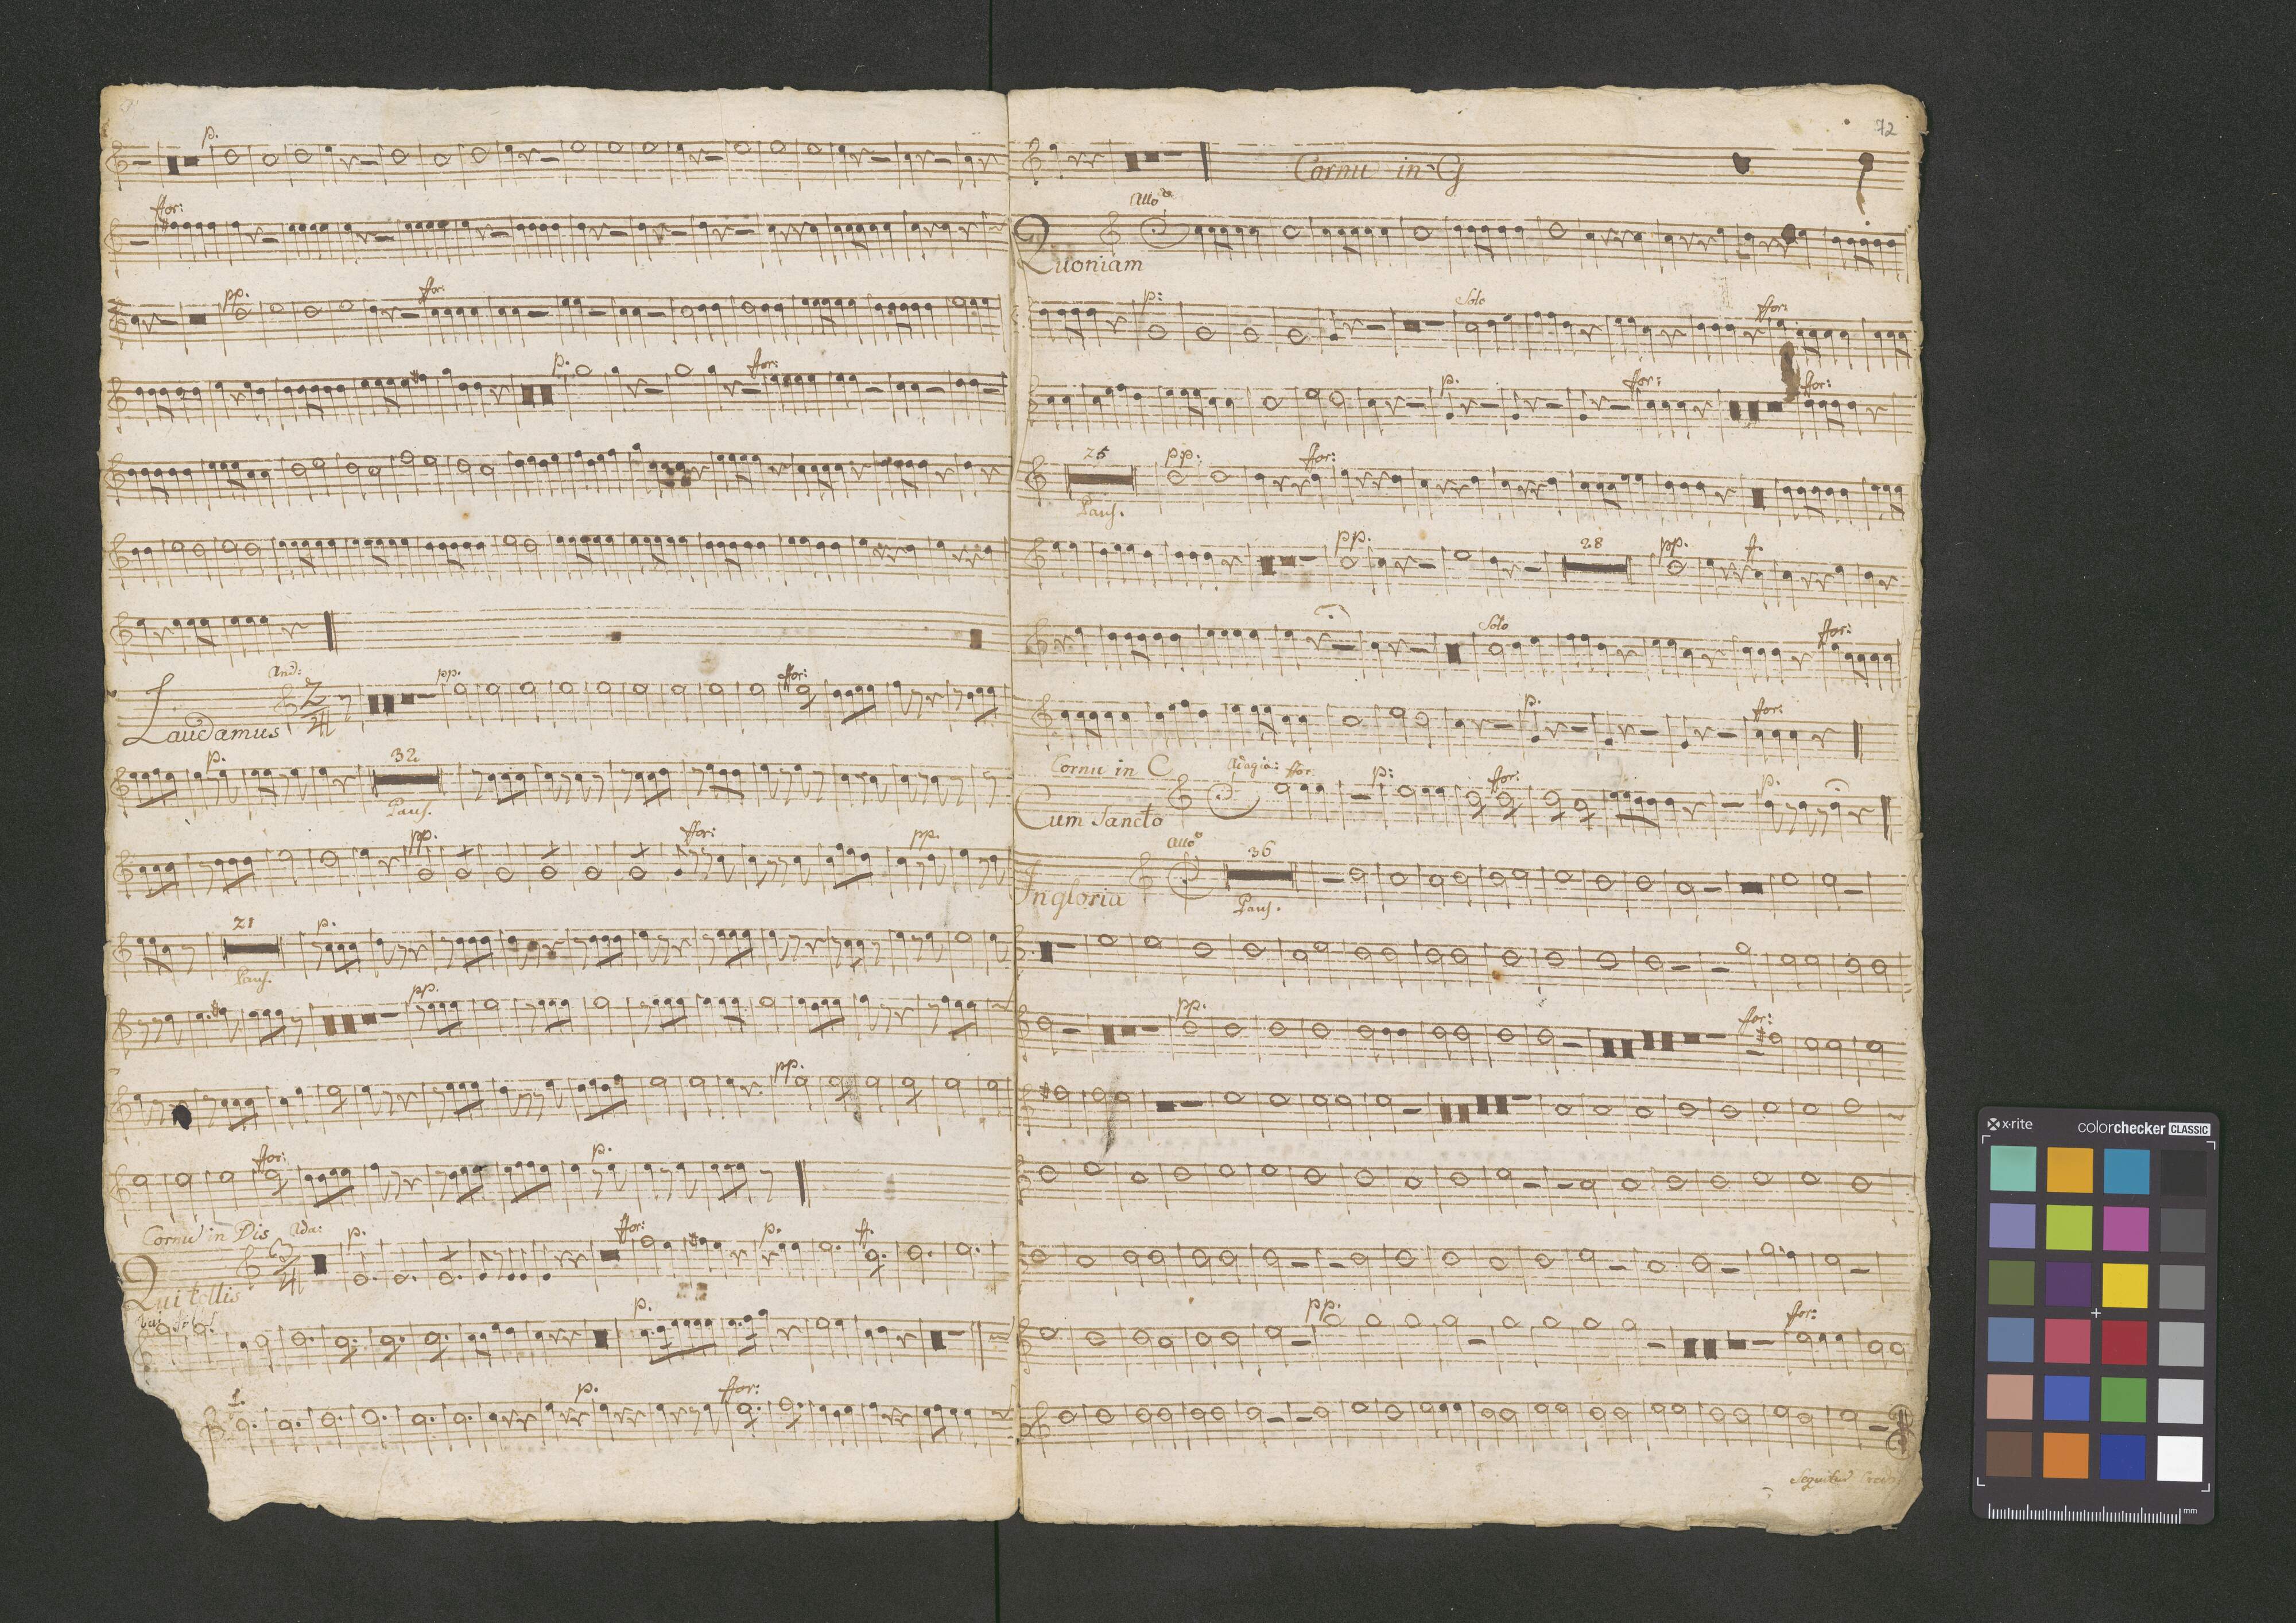 p.
ffor:
pp. ffor:
p. ffor:
And:
pp. ffor:
Laudamus
p. 32
Paus.
pp. ffor: pp.
21 p.
Paus.
pp.
pp.
ffor: p.
Cornu in Dis Ada:
p. ffor: p. ff.
Qui tollis
p.
1. p. ffor:
72
Cornu in G
Allo
Quoniam
p: Solo ffor:
p. ffor: ffor:
25 pp. ffor:
Paus.
pp. 28 pp. f.
Solo ffor:
p. ffor:
Cornu in C Adagio: ffor: p: ffor: p.
Cum Sancto
Allo 36
In gloria Paus.
pp. for:
pp. ffor:
Sequitur Credo
x-rite colorchecker CLASSIC
mm